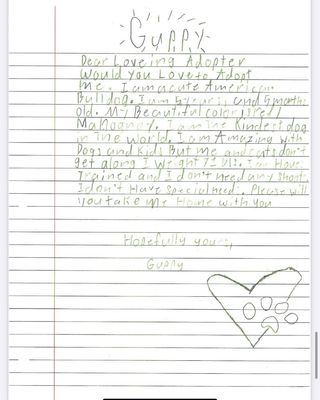 GUPPY
Dear Loveing Adopter
Would you Love to Adopt
me. I am a cute American
Bulldog. I am 5 years and 5 months
old. My Beautiful color is red/
Mahogany. I am the Kindest dog
in The world. I am Amazing with
Dogs and Kids But me and cats don't
get along I weight 71 lbs. I'm House
Trained and I don't need any shots.
I don't Have special needs. Please will
you take me Home with you
Hopefully yours,
Guppy